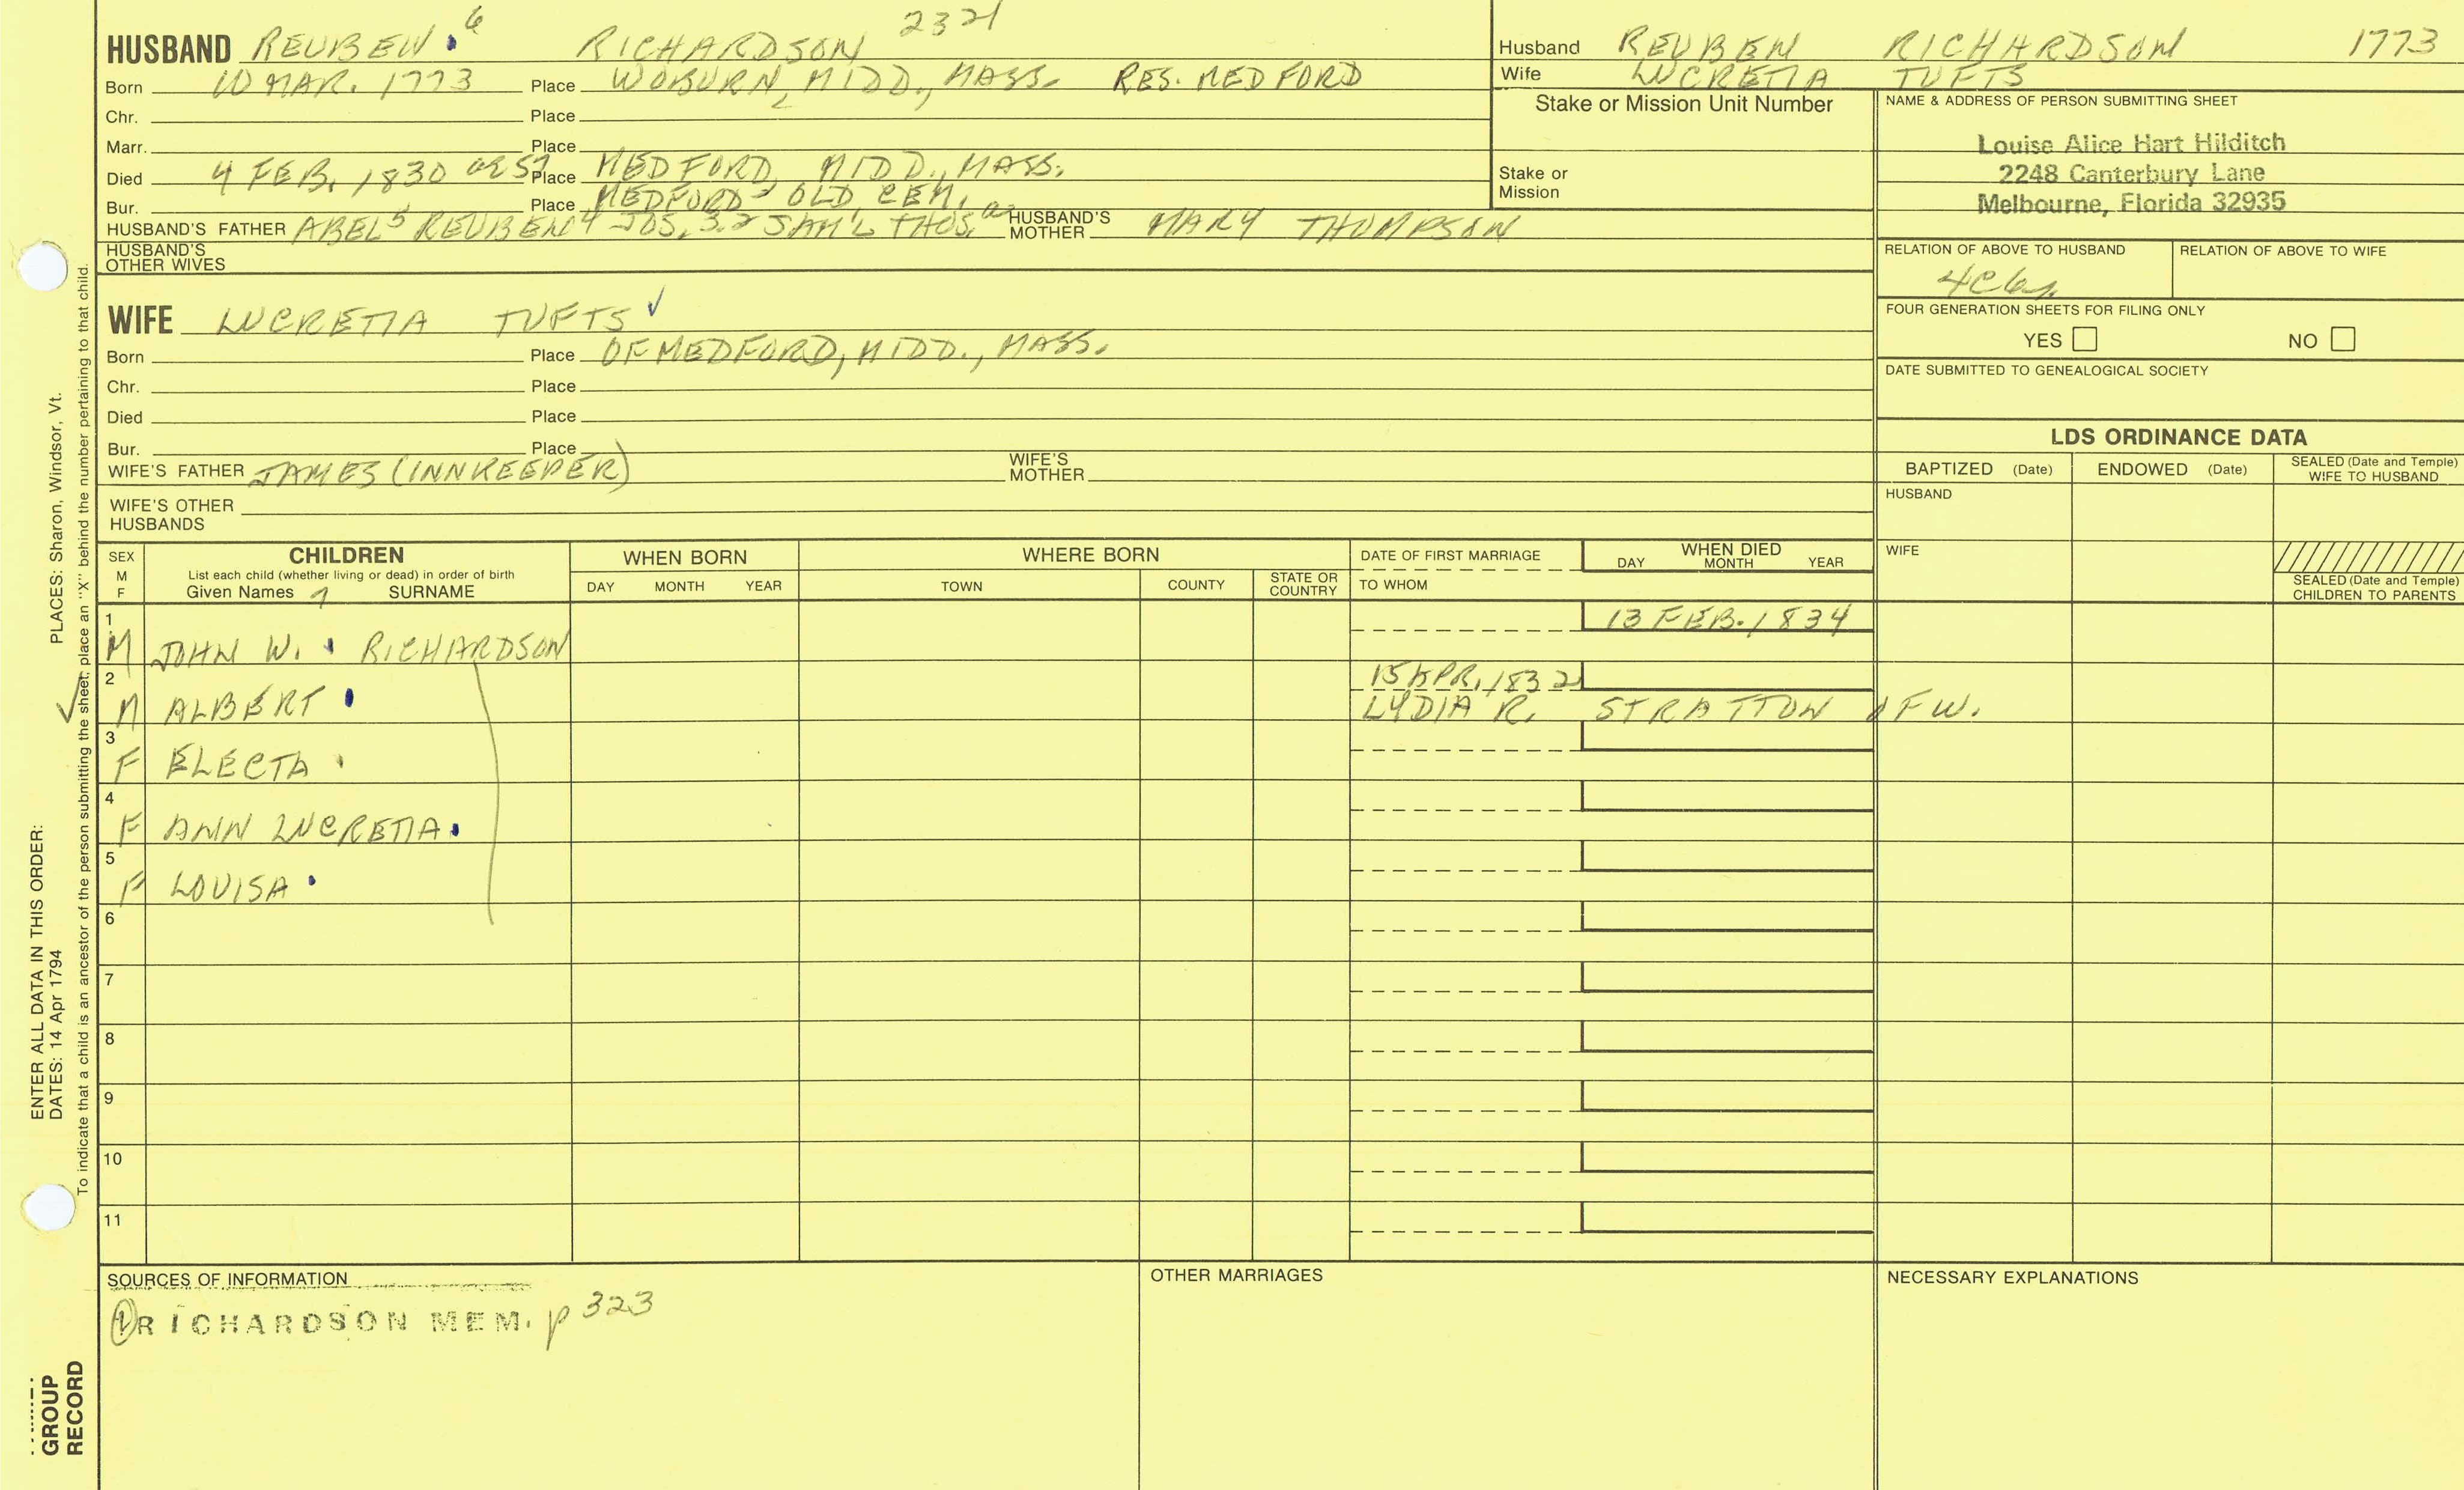 HUSBAND REUBEN 6 RICHARDSON 2321
Born 10 MAR. 1773 Place WOBURN, MIDD., MASS. RES. MEDFORD
Chr. Place
Marr. Place
Died 4 FEB. 1830 Place MEDFORD, MIDD., MASS.
Bur. Place MEDFORD OLD CEM.
HUSBAND'S FATHER ABEL 5 REUBEN 4 JOS. 3.2 SAM'L THOS. HUSBAND'S MOTHER MARY THOMPSON
HUSBAND'S OTHER WIVES
WIFE LUCRETIA TUFTS ✓
Born Place OF MEDFORD, MIDD., MASS.
Chr. Place
Died Place
Bur. Place
WIFE'S FATHER JAMES (INNKEEPER) WIFE'S MOTHER
WIFE'S OTHER HUSBANDS
Husband REUBEN RICHARDSON 1773
Wife LUCRETIA TUFTS
Stake or Mission Unit Number
Stake or Mission
NAME & ADDRESS OF PERSON SUBMITTING SHEET
Louise Alice Hart Hilditch
2248 Canterbury Lane
Melbourne, Florida 32935
RELATION OF ABOVE TO HUSBAND RELATION OF ABOVE TO WIFE
FOUR GENERATION SHEETS FOR FILING ONLY
YES NO
DATE SUBMITTED TO GENEALOGICAL SOCIETY
LDS ORDINANCE DATA
BAPTIZED (Date) ENDOWED (Date) SEALED (Date and Temple) WIFE TO HUSBAND
HUSBAND
WIFE
SEALED (Date and Temple) CHILDREN TO PARENTS
SEX M F CHILDREN WHEN BORN WHERE BORN DATE OF FIRST MARRIAGE WHEN DIED
List each child (whether living or dead) in order of birth
Given Names 7 SURNAME DAY MONTH YEAR TOWN COUNTY STATE OR COUNTRY TO WHOM DAY MONTH YEAR
1 M JOHN W. RICHARDSON 13 FEB. 1834
2 M ALBERT 15 APR. 1832
LYDIA R. STRATTON OF W.
3 F ELECTA
4 F ANN LUCRETIA
5 F LOUISA
6
7
8
9
10
11
SOURCES OF INFORMATION
1 RICHARDSON MEM. p 323
OTHER MARRIAGES
NECESSARY EXPLANATIONS
ENTER ALL DATA IN THIS ORDER:
DATES: 14 Apr 1794 PLACES: Sharon, Windsor, Vt.
To indicate that a child is an ancestor of the person submitting the sheet, place an "X" behind the number pertaining to that child.
GROUP
RECORD